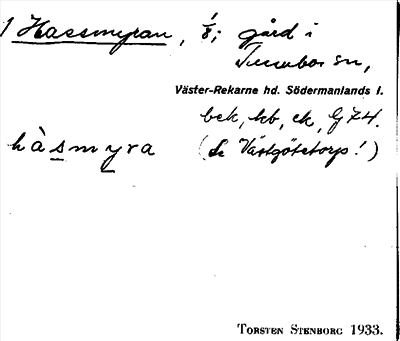 1 Hassmyran, 1/8; gård i
Tumbo sn,
Väster-Rekarne hd. Södermanlands l.
bck, kb, ck, G74.
hàsmyra (Se Västgötetorp!)
TORSTEN STENBORG 1933.